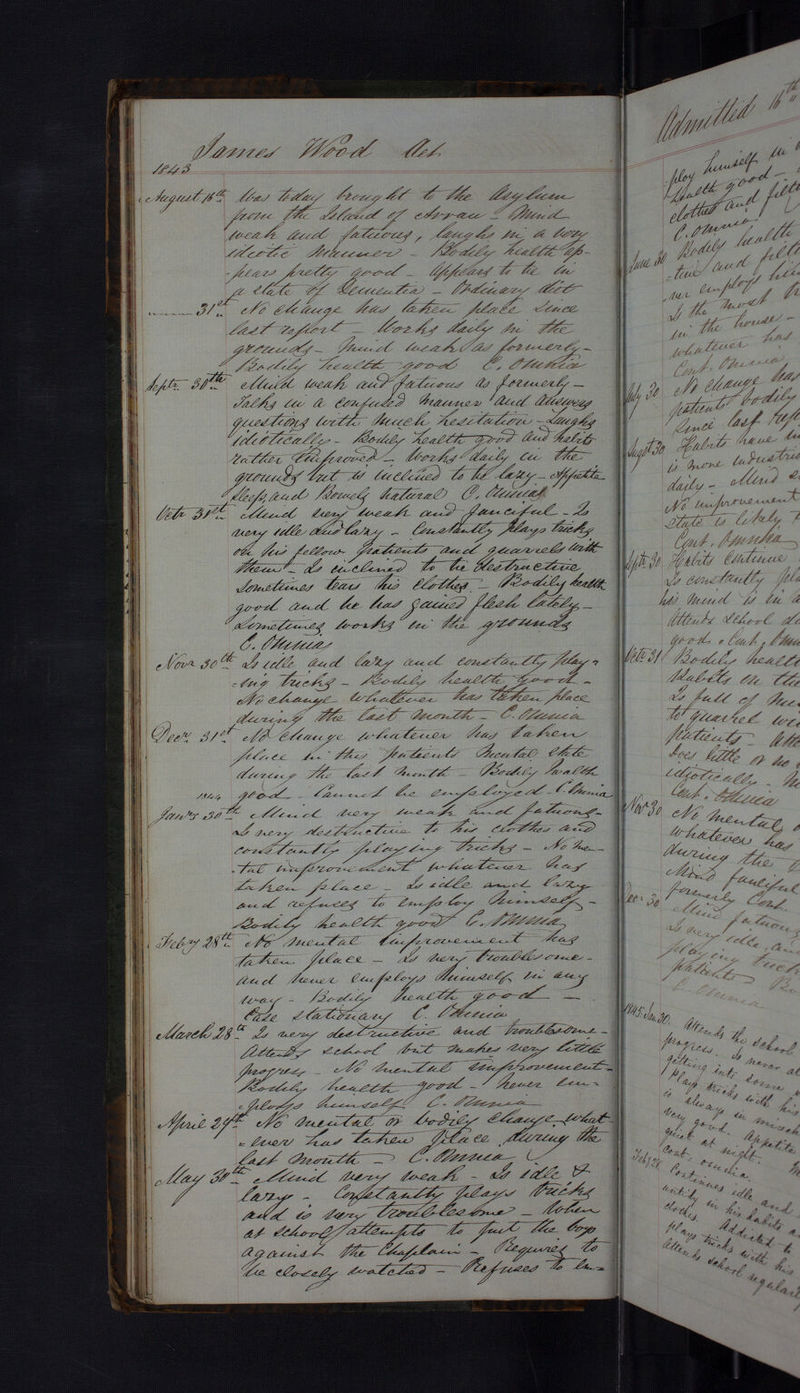 James Wood Aet.
1843
August 16th Was today brought to the Asylum
from the Island of Arran - Mind
weak and fatuous, laughs in a very
idiotic manner - Bodily health ap-
-pears pretty good - Appears to be in
a state of Dementia - Ordinary diet
31st No change has taken place since
last report - Works daily in the
grounds - Mind weak as formerly -
Bodily health good C. Omnia
Septr. 30th Mind weak and fatuous as formerly -
Talks in a confused manner and answers
questions with much hesitation - Laughs
idiotically - Bodily health good and habits
rather improved - Works daily in the
grounds but is inclined to be lazy - Appetite
Sleep and Bowels natural C. Omnia
Octr 31st Mind very weak and fanciful - Is
very idle and lazy - Constantly plays tricks
on his fellow patients and quarrels with
them - Is inclined to be destructive
Sometimes tears his clothes - Bodily health
good and he has gained flesh lately -
Sometimes works in the grounds
C. Omnia
Novr 30th Is idle and lazy and constantly play-
-ing tricks - Bodily health good -
No change whatever has taken place
during the last month - C. Omnia
Decr. 31st No change whatever has taken
place in this patients mental state
during the last month - Bodily health
good - Cannot be employed C. Omnia
1844
Jany 30th Mind very weak and fatuous -
Is very destructive to his clothes and
constantly playing tricks - No men-
-tal improvement whatever has
taken place - Is idle and lazy
and refuses to employ himself -
Bodily health good C. Omnia
Feby 28th No mental improvement has
taken place - Is very troublesome -
and never employs himself in any
way - Bodily health good -
Case stationary C. Omnia
March 28th Is very destructive and troublesome -
Attends school but makes very little
progress - No mental improvement -
Bodily health good - Never em-
-ploys himself C. Omnia
April 29th No mental or bodily change what-
-ever has taken place during the
last month - C. Omnia
May 30th Mind very weak - Is idle &
lazy - Constantly plays tricks
and is very troublesome - When
at school attempts to put the boys
against the Chaplain - Requires to
be closely watched - Refuses to em-
Admitted 16th
ploy himself in
Health good -
clothes and filt
C. Omnia
June 30 Bodily health
-tive and filt
-ver employs him
Is the most
in the house -
whatever has
Cont. Omnia
July 30 No change has
patients bodily
since last rep
Augst 30 Habits have
is more industri
daily - Mind
No improvement
State is likely
Cont. Omnia
Septr 30 Habits continue
Is constantly pl
his mind is in a
Attends School
good. Cont. Omn
Octr 31 Bodily health
Habits on the
Is full of
to quarrel wi
Patients - Att
Does little or no
idiotically.
Cont. Omnia
Novr 30 No mental
whatever has
during the
Mind fanciful
formerly Cont.
Decr 30 Mind fatuous
Is very idle an
playing trick
patients
C. Omnia
1845. Jan 30. Attends the school
progress. Is never
getting into some
Plays tricks with his
is always in mis
very good. Appetite
quiet at night.
Cont. Omnia.
Feby 28 Continues idle and
untidy in his habits a
clothes. Addicted to
plays tricks with his
Attends school regular